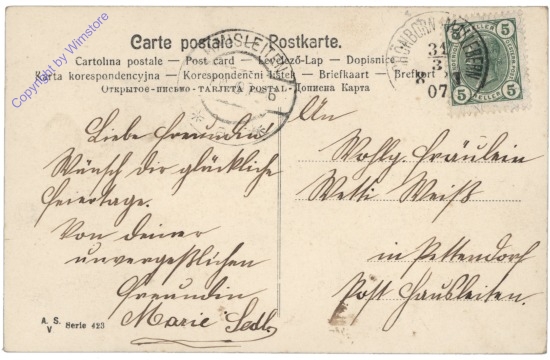 Copyright by Wimstore
Carte postale — Postkarte.
Cartolina postale — Post card — Levelező-Lap — Dopisnice
Karta korespondencyjna — Korespondenční lístek — Briefkaart — Brefkort
Открытое-письмо — TARJETA POSTAL — Дописна Карта
HAUSLEITEN
31
3
07
5 5
5 5
HELLER
Liebe Freundin!
Wünsch dir glückliche
Feiertage.
Von deiner
unvergeßlichen
Freundin
Marie Sedl
An
Wohlg. Fräulein
Wetti Weiß
in Pettendorf
Post Hausleiten.
A. S.
V
Serie 423